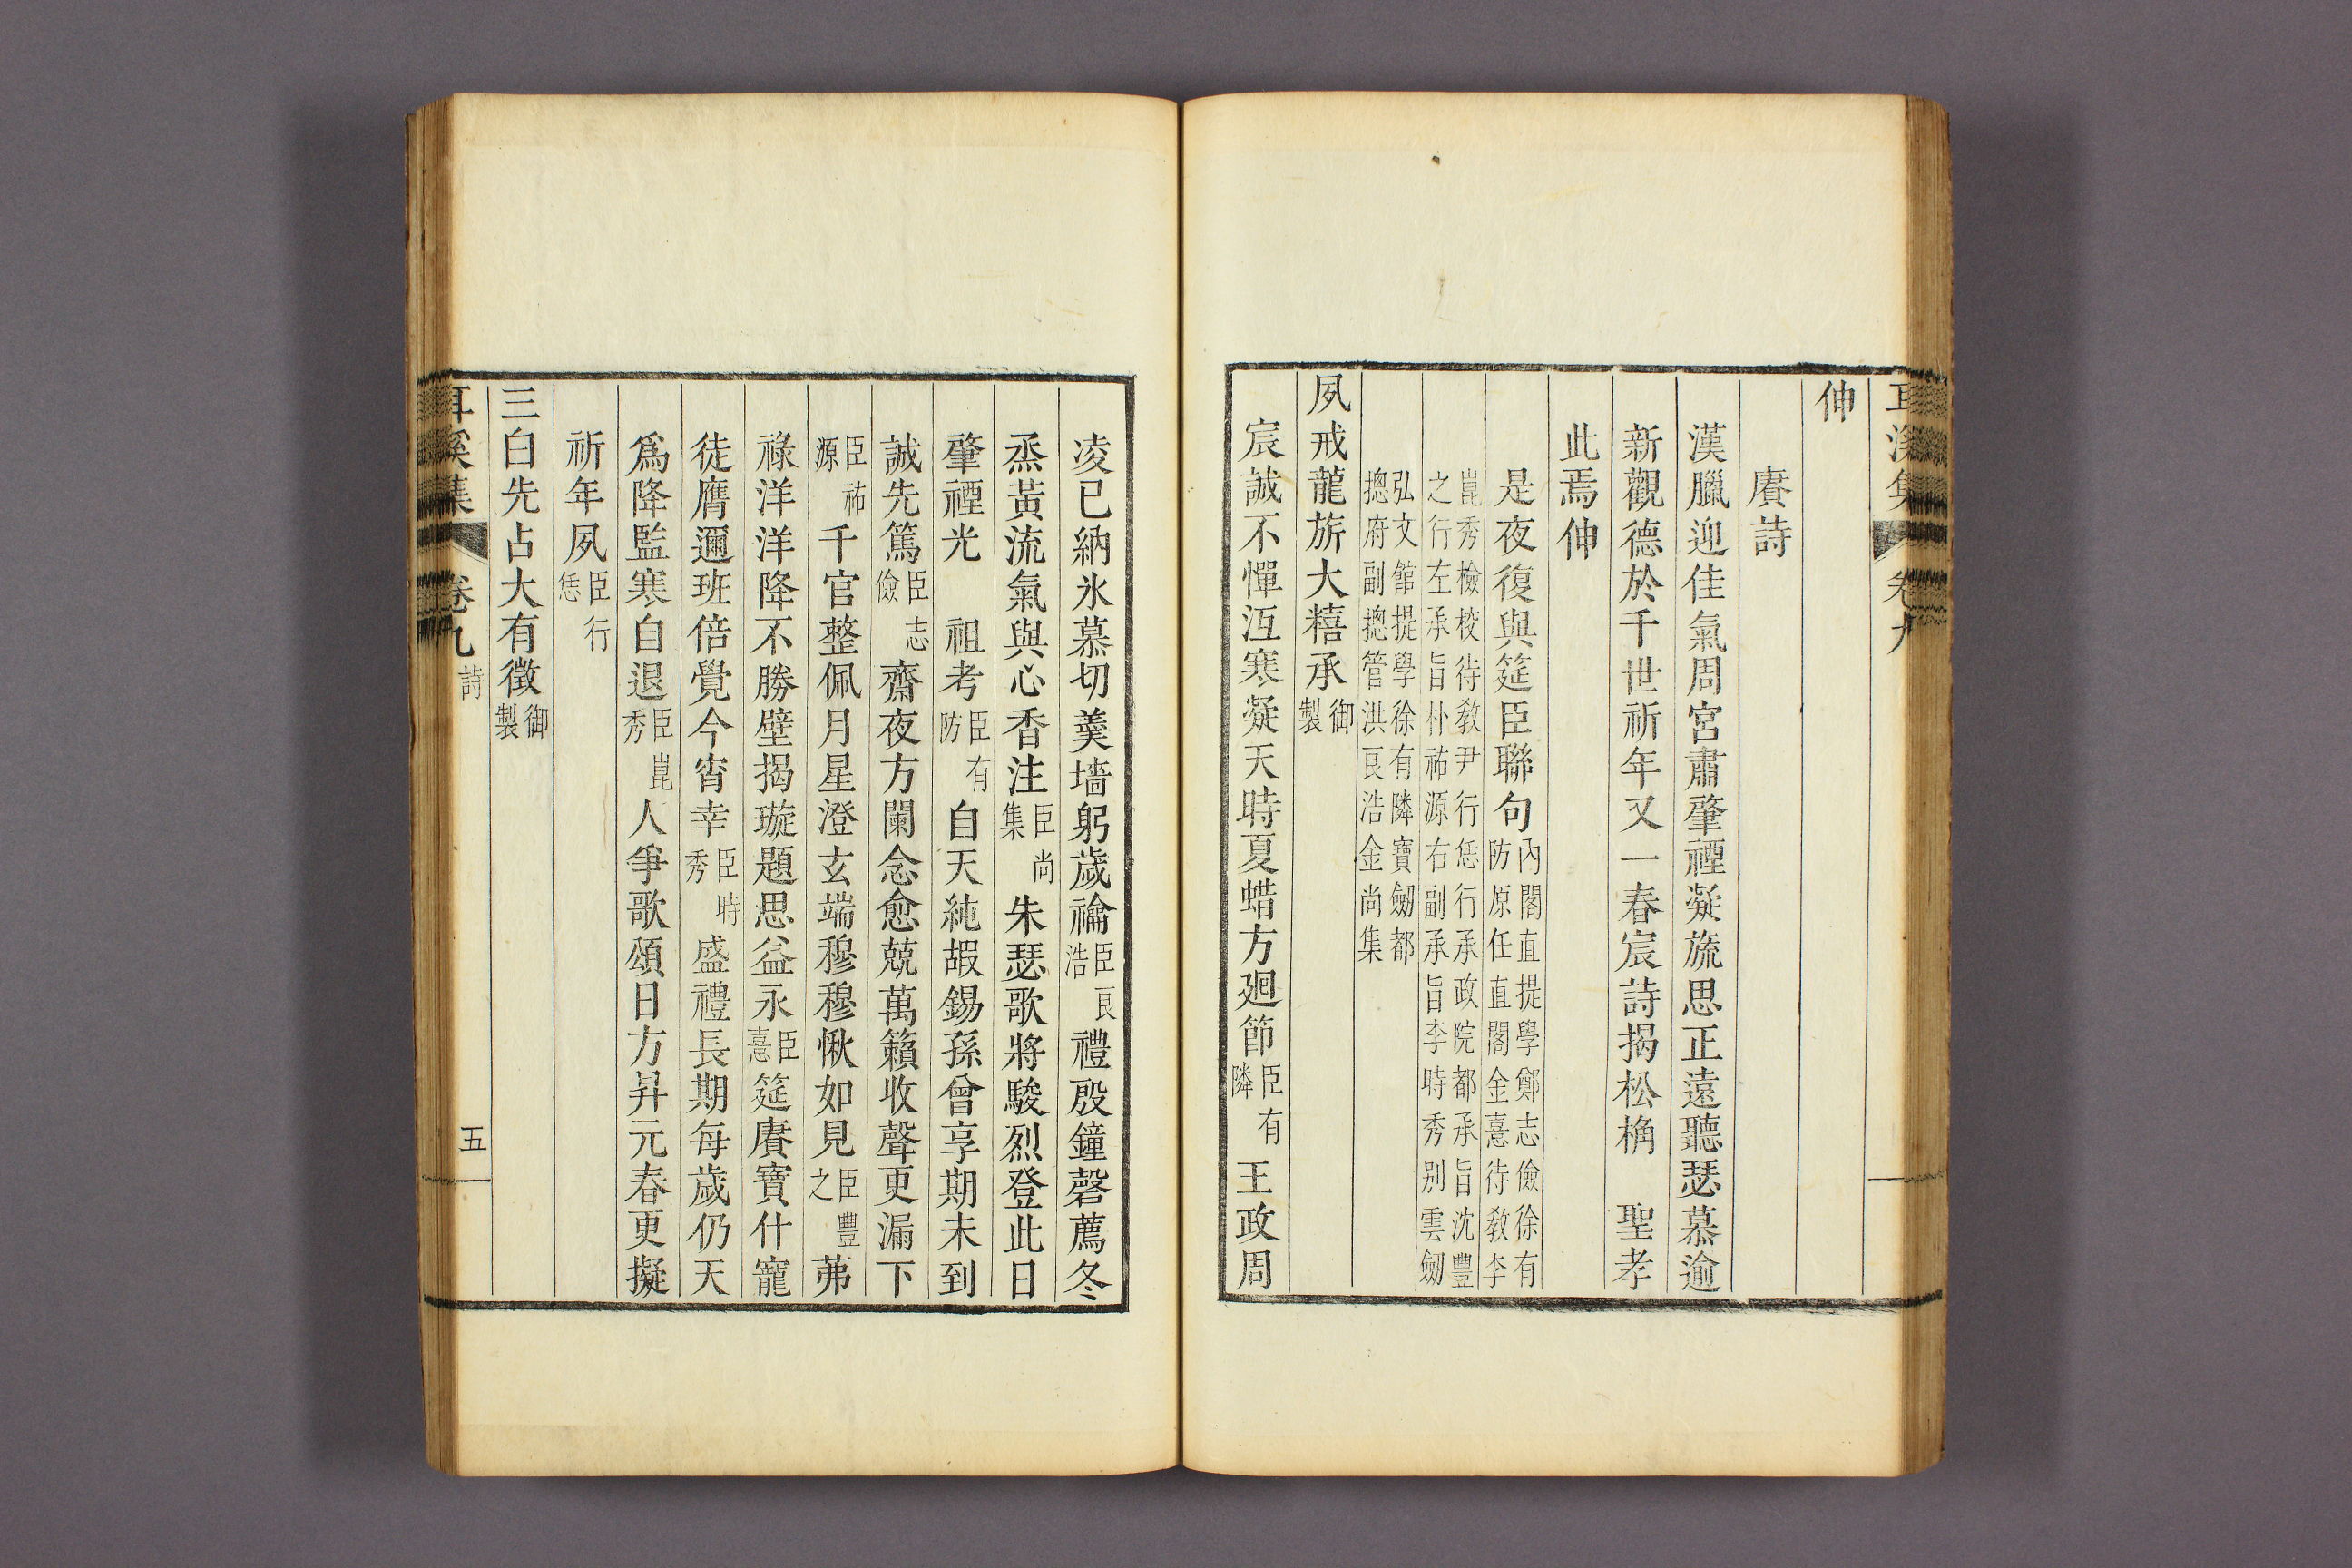 耳溪集 卷九
伸
賡詩
漢臘迎佳氣周宮肅肇禋凝旒思正遠聽瑟慕逾
新觀德於千世祈年又一春宸詩揭松桷 聖孝
此焉伸
是夜復與筵臣聯句內閣直提學鄭志儉徐有
防原任直閣金憙待教李
崑秀檢校待教尹行恁行承政院都承旨沈豐
之行左承旨朴祐源右副承旨李時秀別雲劒
弘文館提學徐有隣寶劒都
摠府副摠管洪良浩金尙集
夙戒龍旂大糦承御製
宸誠不憚沍寒凝天時夏蜡方廻節臣有隣 王政周
凌已納氷慕切羹墻躬歲禴臣良浩禮殷鐘磬薦冬
烝黃流氣與心香注臣尙集朱瑟歌將駿烈登此日
肇禋光 祖考臣有防自天純嘏錫孫曾享期未到
誠先篤臣志儉齋夜方闌念愈兢萬籟收聲更漏下
臣祐源千官整佩月星澄玄端穆穆愀如見臣豐之茀
祿洋洋降不勝壁揭璇題思益永臣憙筵賡寶什寵
徒膺邇班倍覺今宵幸臣時秀盛禮長期每歲仍天
爲降監寒自退臣崑秀人爭歌頌日方昇元春更擬
祈年夙臣行恁
三白先占大有徵御製
耳溪集 卷九 詩 五